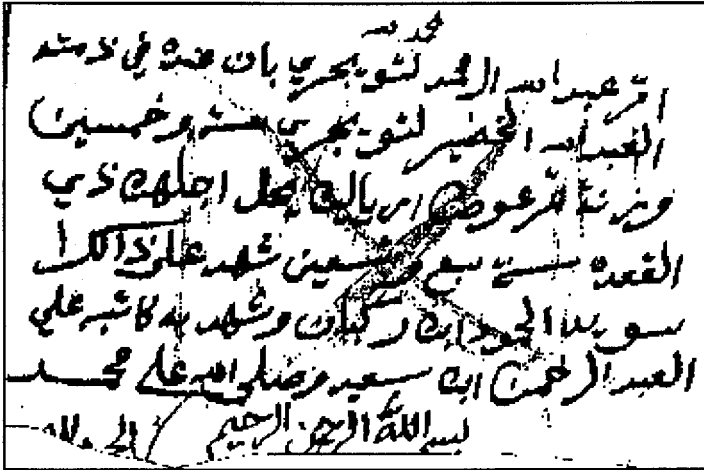 الحمد لله
اقر عبد الله الحمد لتويجري بان عنده في ذمته
العبد الله الخضير لتويجري ستة وخمسين
وزنة تمر عوض اريالين يحل اجلهن ذي
القعدة سنة سبع وتسعين شهد على ذالك
سويد ابن وشهد به كاتبه علي
العبد الرحمن ابن سعيد وصلى الله على محمد
بسم الله الرحمن الرحيم